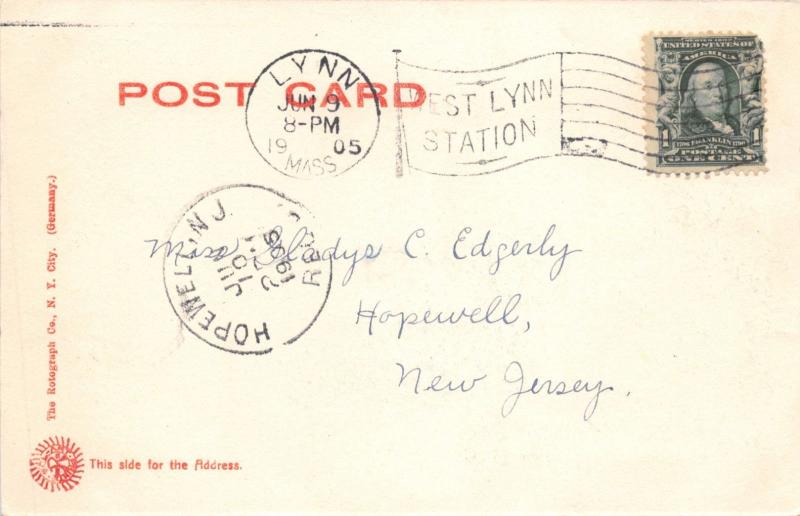 POST CARD
LYNN
JUN 9
8-PM
19 05
MASS
WEST LYNN
STATION
SERIES 1902
UNITED STATES OF
AMERICA
1 FRANKLIN 1
POSTAGE
ONE CENT
HOPEWELL, N J
JUN
10
1905
REC'D
Miss Gladys C. Edgerly
Hopewell,
New Jersey.
The Rotograph Co., N. Y. City. (Germany.)
This side for the Address.